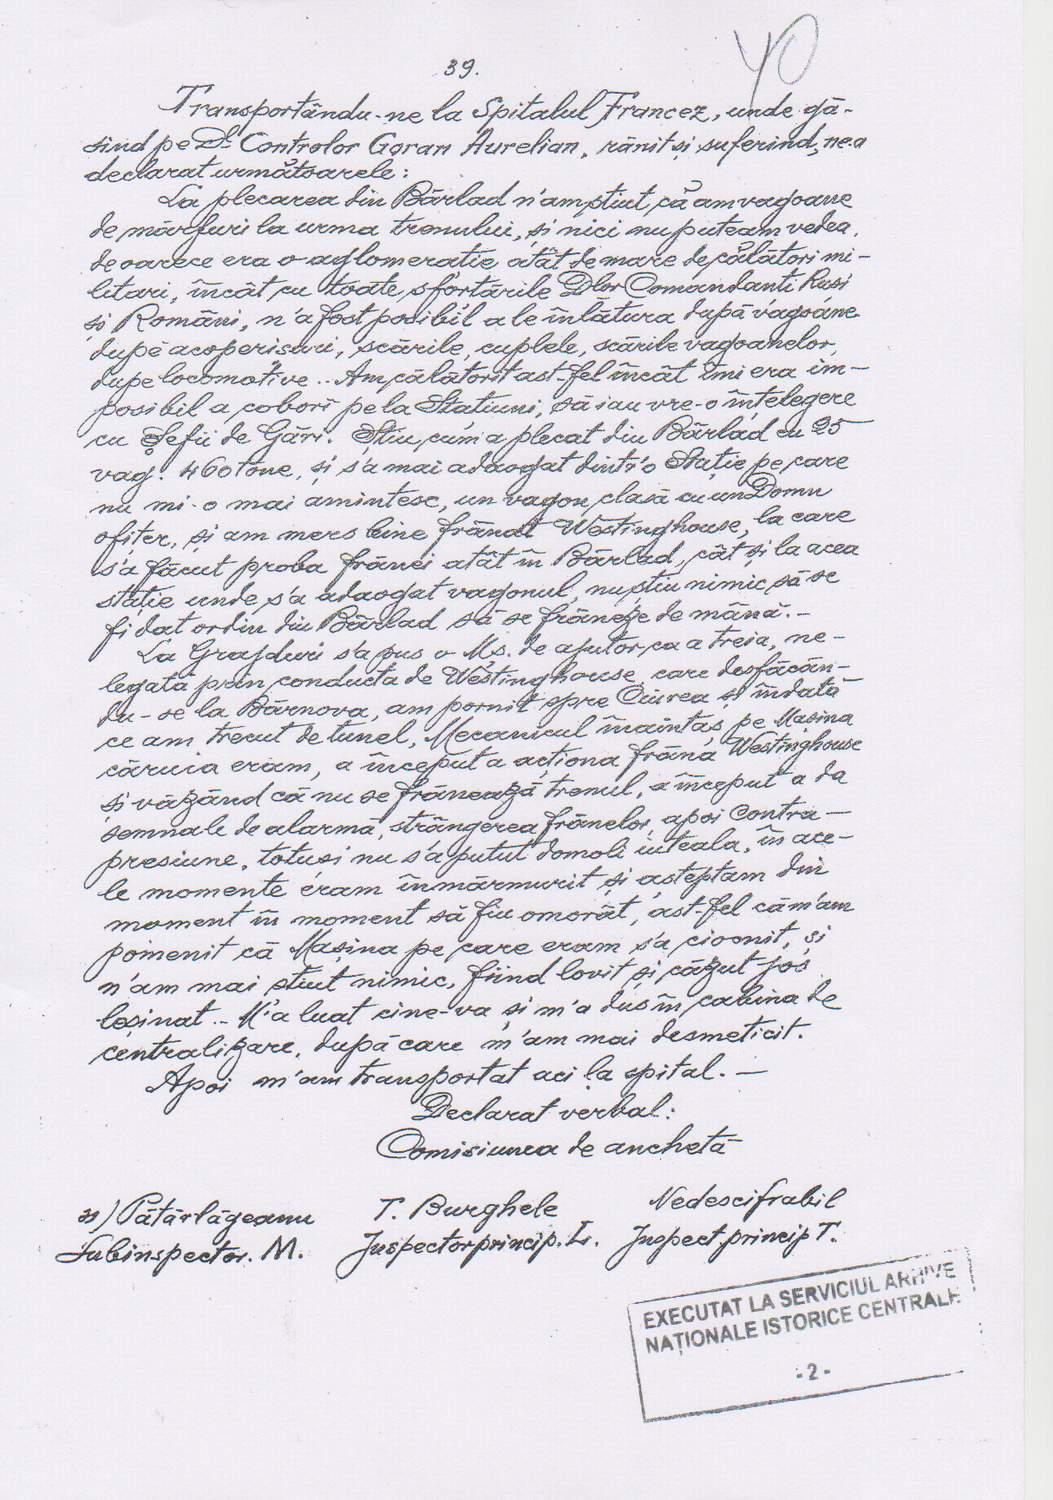 40
39.
Transportându-ne la Spitalul Francez, unde gă-
sind pe Dl Controlor Goran Aurelian, rănit și suferind, ne-a
declarat următoarele:
La plecarea din Bârlad n'am știut că am vagoane
de mărfuri la urma trenului, și nici nu puteam vedea,
deoarece era o aglomeratie atât de mare de călători mi-
litari, încât cu toate sfortările Dlor Comandanti Ruși
și Români, n'a fost posibil a le înlătura după vagoane
dupe acoperisuri, scările, cuplele, scările vagoanelor,
dupe locomotive.. Am călătorit ast-fel încât îmi era im-
posibil a cobori pe la Statiuni, să iau vre-o întelegere
cu Șefii de Gări. Știu cum a plecat din Bârlad cu 25
vag. 460 tone, și s'a mai adaogat dintr'o Stație pe care
nu mi-o mai amintesc, un vagon clasă cu un Domn
ofiter, și am mers bine frânat Westinghouse, la care
s'a făcut proba frânei atât în Bârlad, cât și la acea
stație unde s'a adaogat vagonul, nu știu nimic să se
fi dat ordin din Bârlad să se frâneze de mână.-
La Grajduri s'a pus o Mș. de ajutor, ca a treia, ne-
legată prin conducta de Westinghouse, care desfăcân-
du-se la Bârnova, am pornit spre Ciurea și îndată
ce am trecut de tunel, Mecanicul înaintaș pe Mașina
căruia eram, a început a acționa frâna Westinghouse
și văzând că nu se frânează trenul, a început a da
semnale de alarmă, strângerea frânelor, apoi Contra-
presiune, totusi nu s'a putut domoli iuteala, în ace-
le momente eram înmărmurit și asteptam din
moment în moment să fiu omorât, ast-fel că m'am
pomenit că Mașina pe care eram s'a ciocnit, și
n'am mai stiut nimic, fiind lovit și căzut jos
leșinat.- M'a luat cine-va și m'a dus în cabina de
centralizare, după care m'am mai desmeticit.
Apoi m'am transportat aci la spital.-
Declarat verbal:
Comisiunea de anchetă
ss) Pătârlăgeanu T. Burghele Nedescifrabil
Subinspector. M. Inspector princip. L. Inspect. princip T.
EXECUTAT LA SERVICIUL ARHIVE
NAȚIONALE ISTORICE CENTRALE
- 2 -